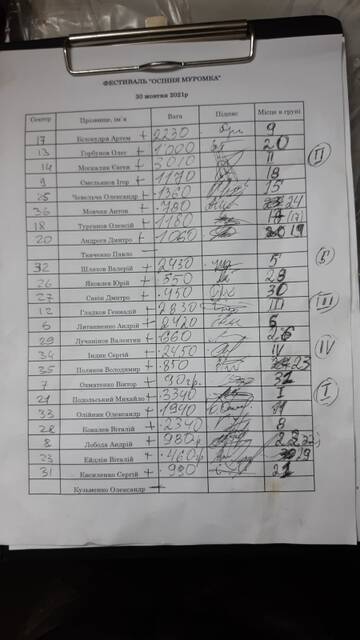 ФЕСТИВАЛЬ "ОСІННЯ МУРОМКА"
30 жовтня 2021р
Сектор Прізвище, ім'я Вага Підпис Місце в групі
17 Білокудря Артем + 2230 9
13 Горбунов Олег + 1000 20
14 Москалик Євген + 3010 II II
9 Омельянов Ігор + 1170 18
25 Чевельча Олександр + 1360 15
36 Мовчан Антон + 780 24
18 Тургенев Олексій + 1180 17
20 Андреєв Дмитро + 1060 19
Ткаченко Павло —
32 Шматов Валерій + 2430 5 Б
26 Яковлев Юрій + 550 28
27 Савін Дмитро + 450 30
12 Гладков Геннадій + 2830 III III
5 Литвиненко Андрій + 2420 6
29 Лучанінов Валентин + 660 26
34 Індик Сергій + 2450 IV IV
35 Поляков Володимир + 850 23
7 Охматенко Виктор + 90гр. 31
21 Подольський Михайло + 3340 I I
33 Олійник Олександр + 1940 11
28 Ковалов Віталій + 2340 8
8 Лобода Андрій + 980р 22
23 Ейдлін Віталій + 460р 29
31 Касиленко Сергій + 990 21
Кузьменко Олександр —